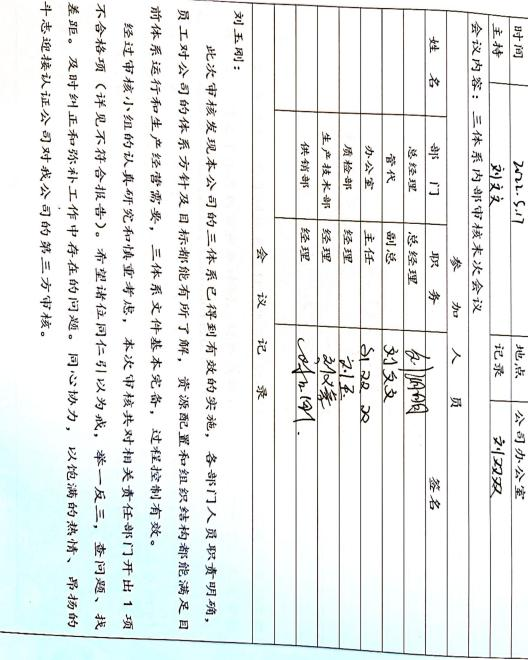 时间 2022.5.17 地点 公司办公室
主持 刘文文 记录 刘双双
会议内容：三体系内部审核末次会议
参加人员
姓名 部门 职务 签名
总经理 总经理
管代 副总 刘文文
办公室 主任 刘双双
质检部 经理 刘玉
生产技术部 经理
供销部 经理
会议记录
刘玉刚：
此次审核发现本公司的三体系已得到有效的实施，各部门人员职责明确，
员工对公司的体系方针及目标都能有所了解，资源配置和组织结构都能满足目
前体系运行和生产经营需要，三体系文件基本完备，过程控制有效。
经过审核小组的认真研究和慎重考虑，本次审核共对相关责任部门开出1项
不合格项（详见不符合报告）。希望诸位同仁引以为戒，举一反三，查问题、找
差距。及时纠正和弥补工作中存在的问题。同心协力，以饱满的热情、昂扬的
斗志迎接认证公司对我公司的第三方审核。